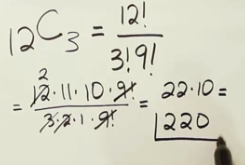 ₁₂C₃ = 12! / 3!9!
= 12·11·10·9! / 3·2·1·9! = 22·10 =
2
220